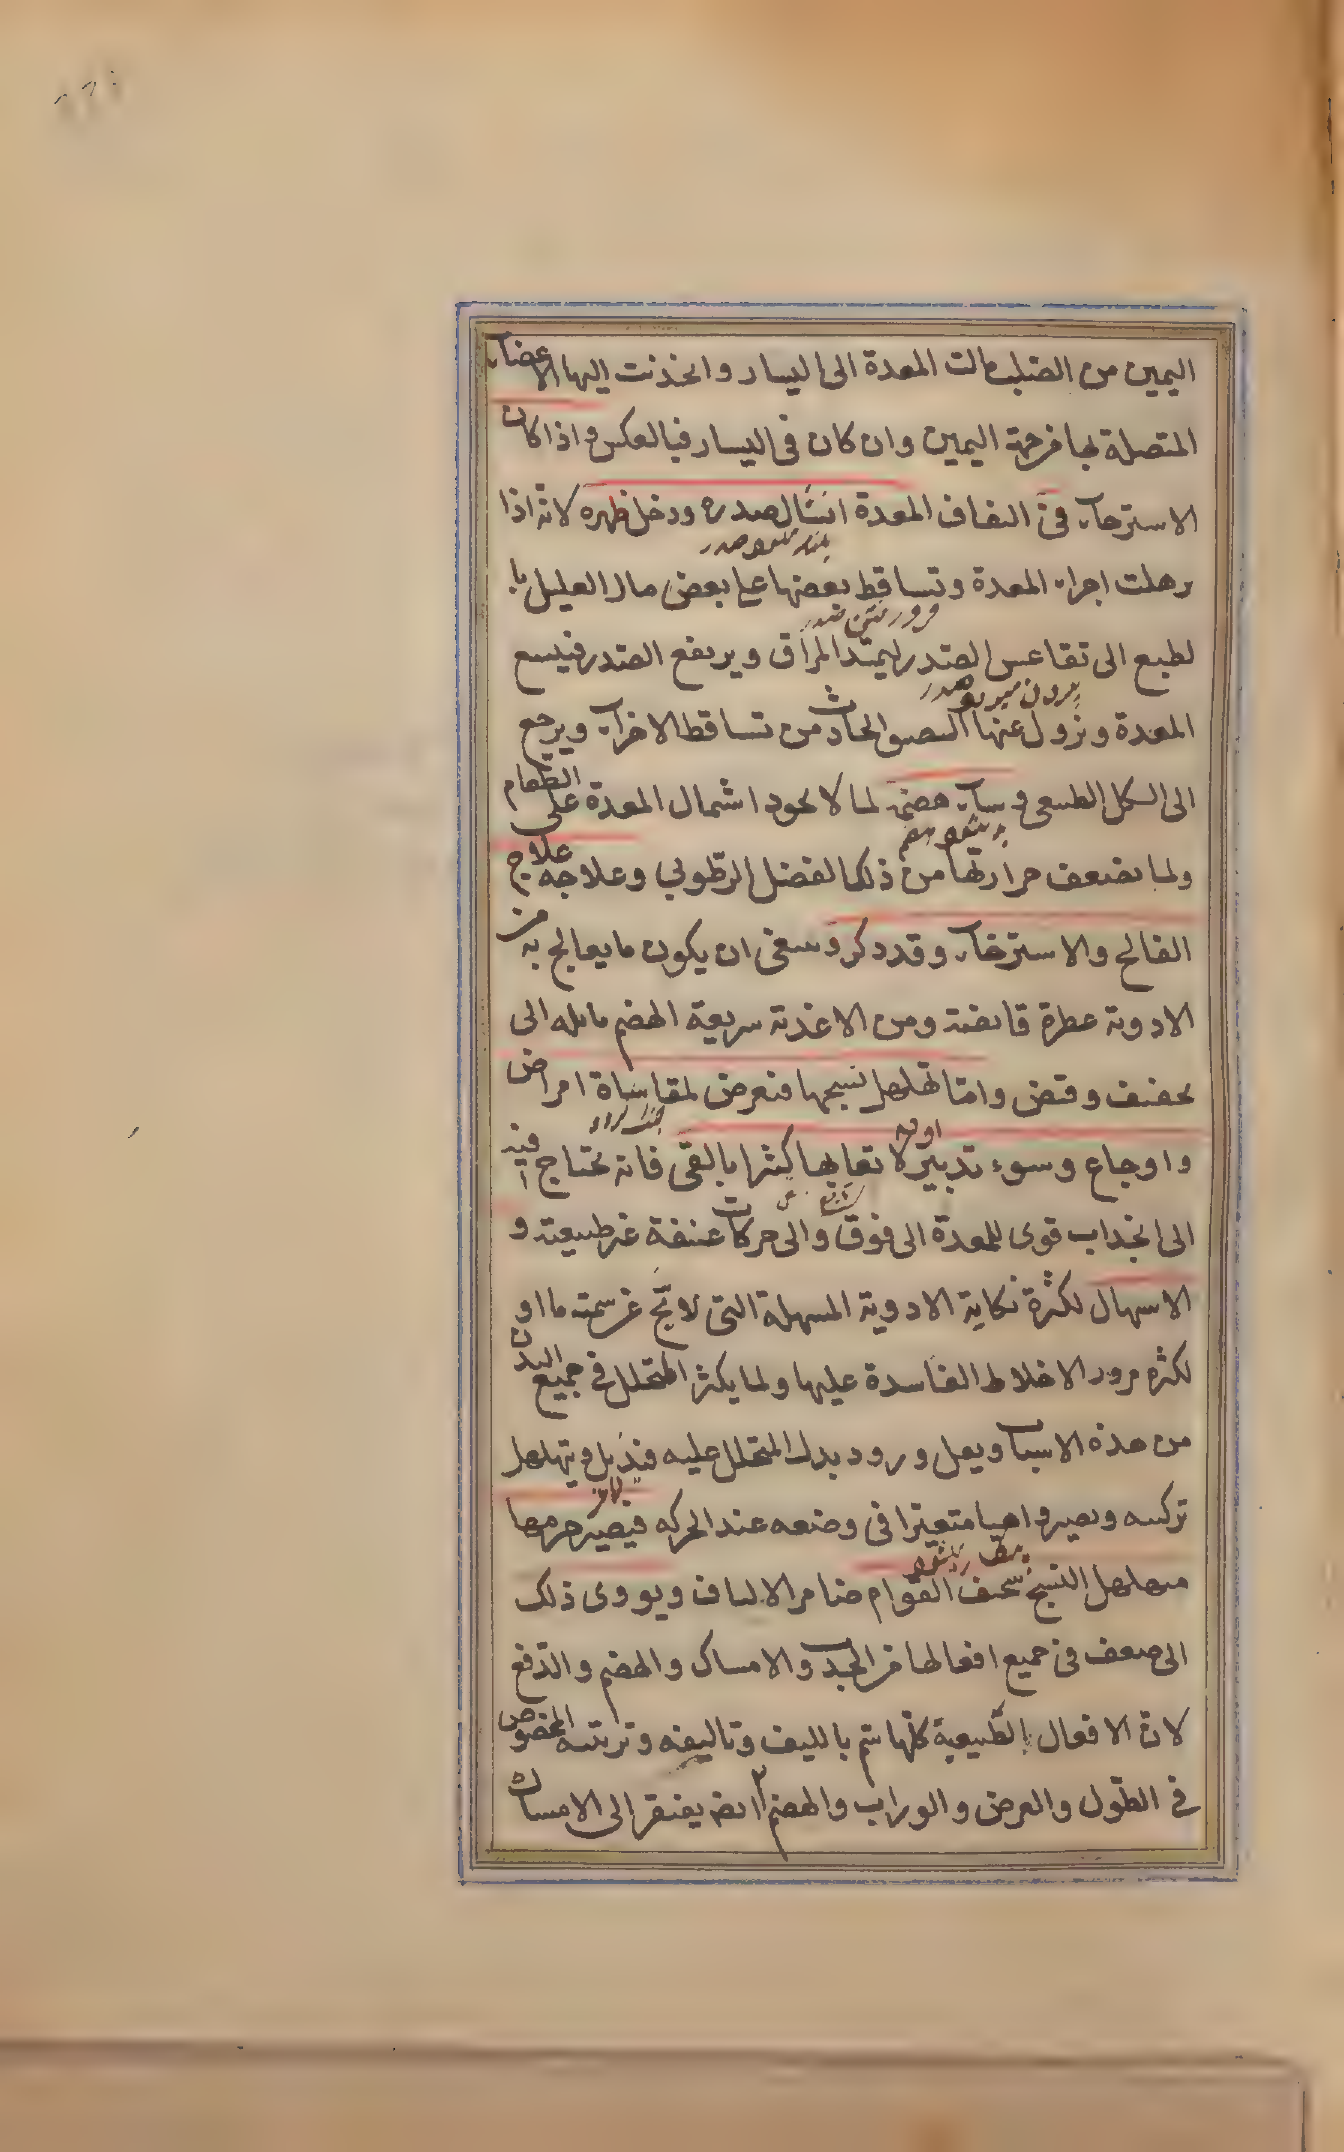 اليمين من الصلب مالت المعدة الى اليسار وانجذبت اليها الاعضاء
المتصلة بها من جهة اليمين وان كان فى اليسار فبالعكس واذا كان
الاسترخاء فى التفاف المعدة انشال صدره ودخل ظهره لانه اذا
ترهلت اجزاء المعدة وتساقط بعضها على بعض مال العليل با
لطبع الى تقاعس الصدر ليمتد المراق ويرتفع الصدر فيتسع
المعدة ويزول عنها الضيق الحادث من تساقط الاجزاء ويرجع
الى الشكل الطبيعى وساء هضمه لما لا يجود اشتمال المعدة على الطعام
ولما يضعف حرارتها من ذلك الفضل الرطوبي وعلاجه علاج
الفالج والاسترخاء وقد ذكر وينبغى ان يكون ما يعالج به من
الادوية عطرة قابضة ومن الاغذية سريعة الهضم مايلة الى
تجفيف وقبض واما تهلهل نسجها فيعرض لمقاساة امراض
واوجاع وسوء تدبير لا تعابها كثيرا بالقى فانه يحتاج فيه
الى انجذاب قوى للمعدة الى فوق والى حركات عنيفة غير طبيعية و
الاسهال لكثرة نكاية الادوية المسهلة التى لا يخ عن سمية ما او
لكثرة مرور الاخلاط الفاسدة عليها ولما يكثر التحلل فى جميع البدن
من هذه الاسباب ويقل ورود بدل المتحلل عليه فيذبل ويتهلهل
تركيبه ويصير واهيا متغيرا فى وضعه عند الحركة فيصير جرمها
مهلهل النسج سخيف القوام ضامر الالياف ويودى ذلك
الى ضعف فى جميع افعالها من الجذب والامساك والهضم والدفع
لان الافعال الطبيعية كلها يتم بالليف وتاليفه وتربيته المخصوص
فى الطول والعرض والوراب والهضم ايضا يفتقر الى الامساك